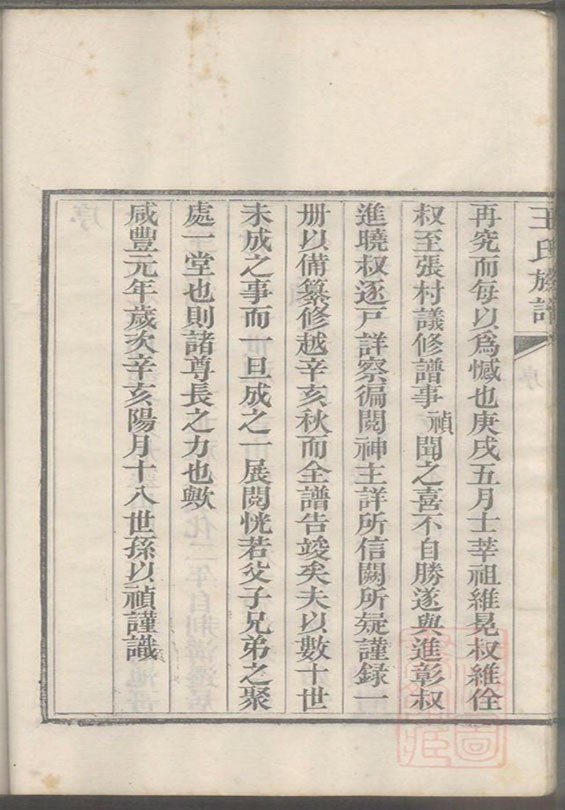 王氏族譜
序
再究而每以爲憾也庚戌五月士莘祖維晃叔維佺
叔至張村議修譜事禎聞之喜不自勝遂與進彰叔
進曉叔逐戸詳察徧閱神主詳所信闕所疑謹録一
册以備纂修越辛亥秋而全譜告竣矣夫以數十世
未成之事而一旦成之一展閱恍若父子兄弟之聚
處一堂也則諸尊長之力也歟
咸豐元年歲次辛亥陽月十八世孫以禎謹識